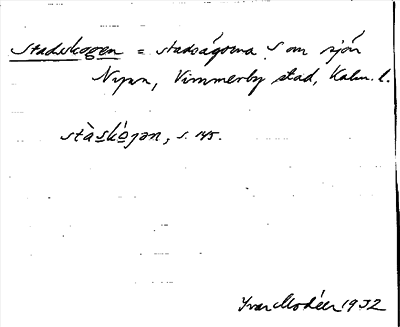 Stadsskogen = stadsägorna S om sjön
Nyen, Vimmerby stad, Kalm. l.
stàskógən, s. 145.
Ivar Modéer 1932